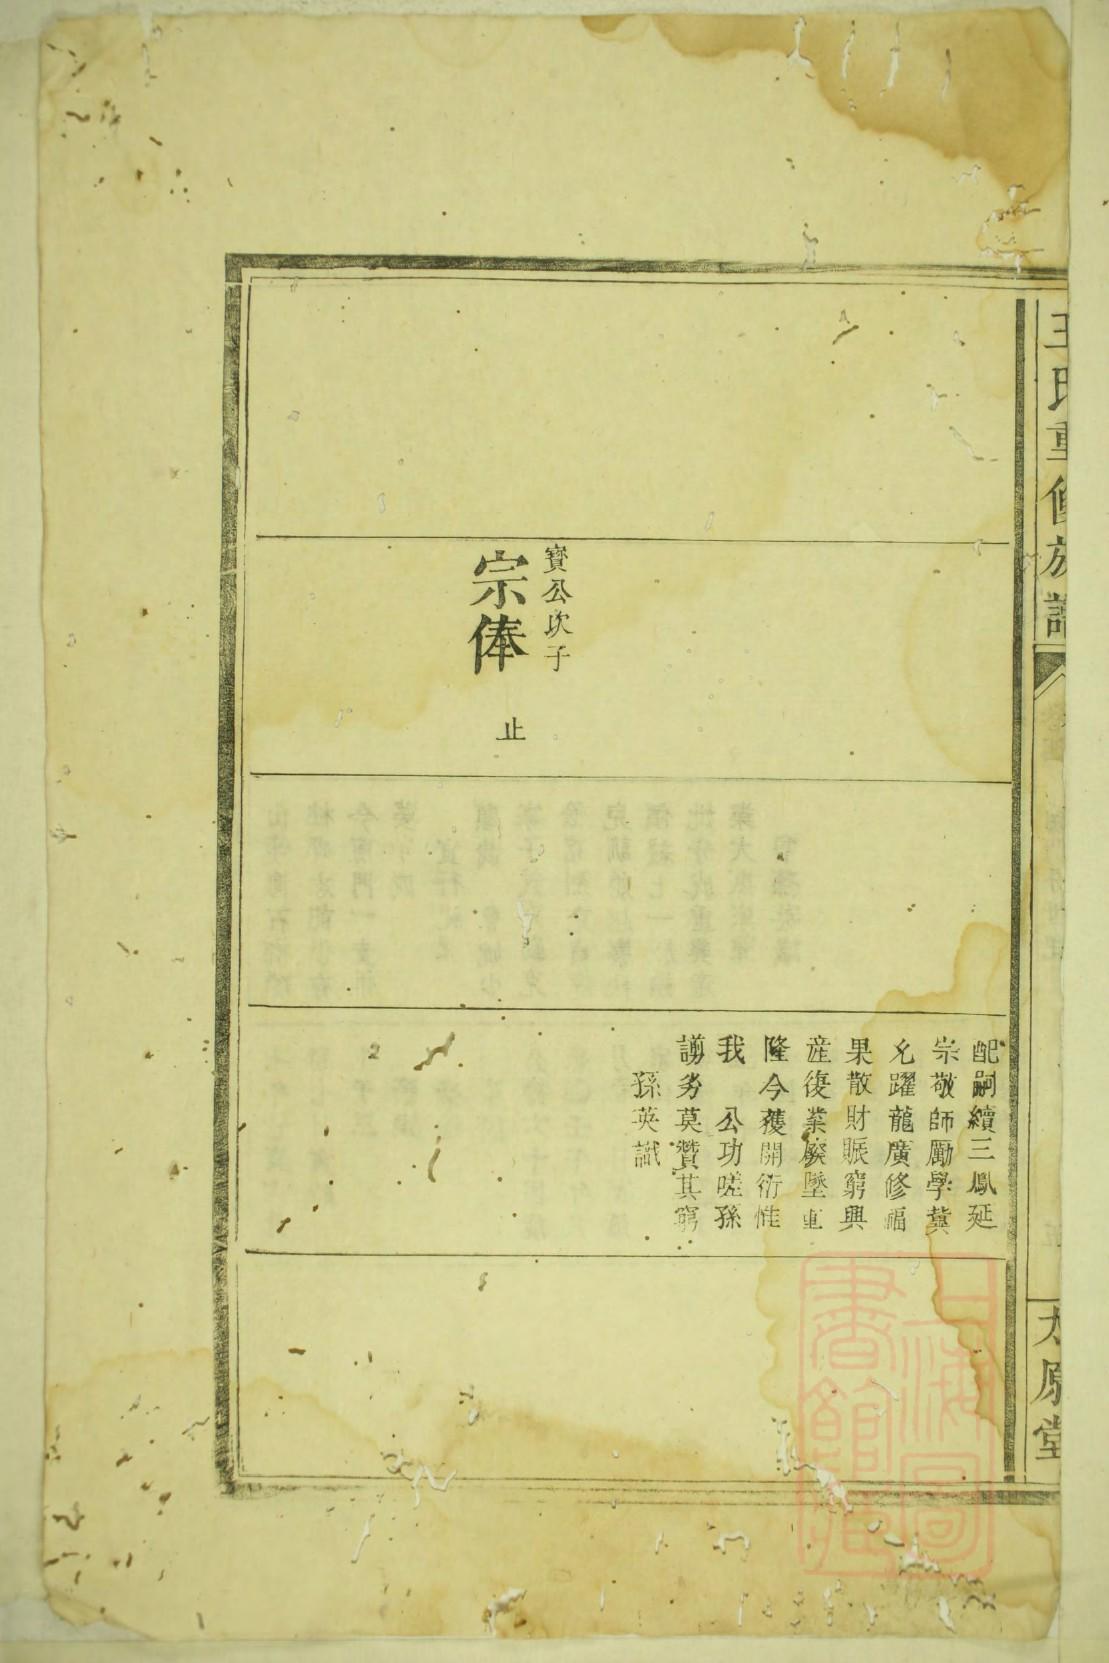 王氏重修族譜
太原堂
寶公次子
宗俸
止
配嗣續三鳳延
崇敬師勵學冀
允躍龍廣修福
果散財賑窮興
產復業廢墜重
隆今獲開衍惟
我 公功嗟孫
謭劣莫贊其窮
孫英識
上海圖書館藏